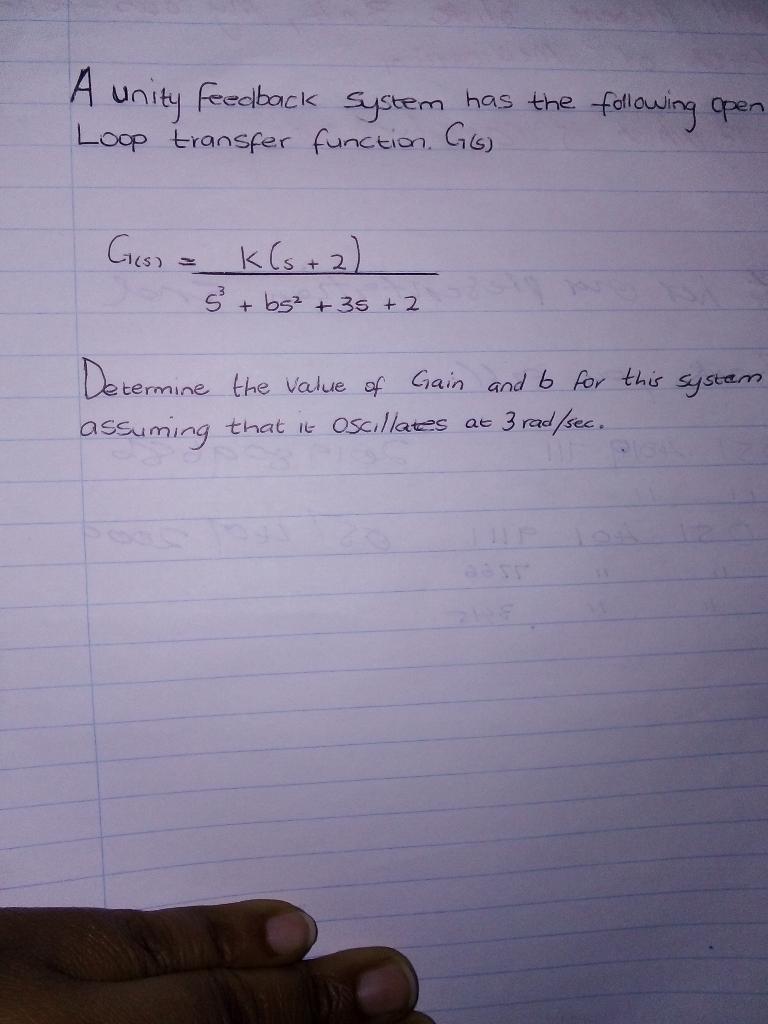 A unity feedback system has the following open
Loop transfer function. G(s)
G(s) = K(s + 2)
s³ + bs² + 3s + 2
Determine the value of Gain and b for this system
assuming that it oscillates at 3 rad/sec.